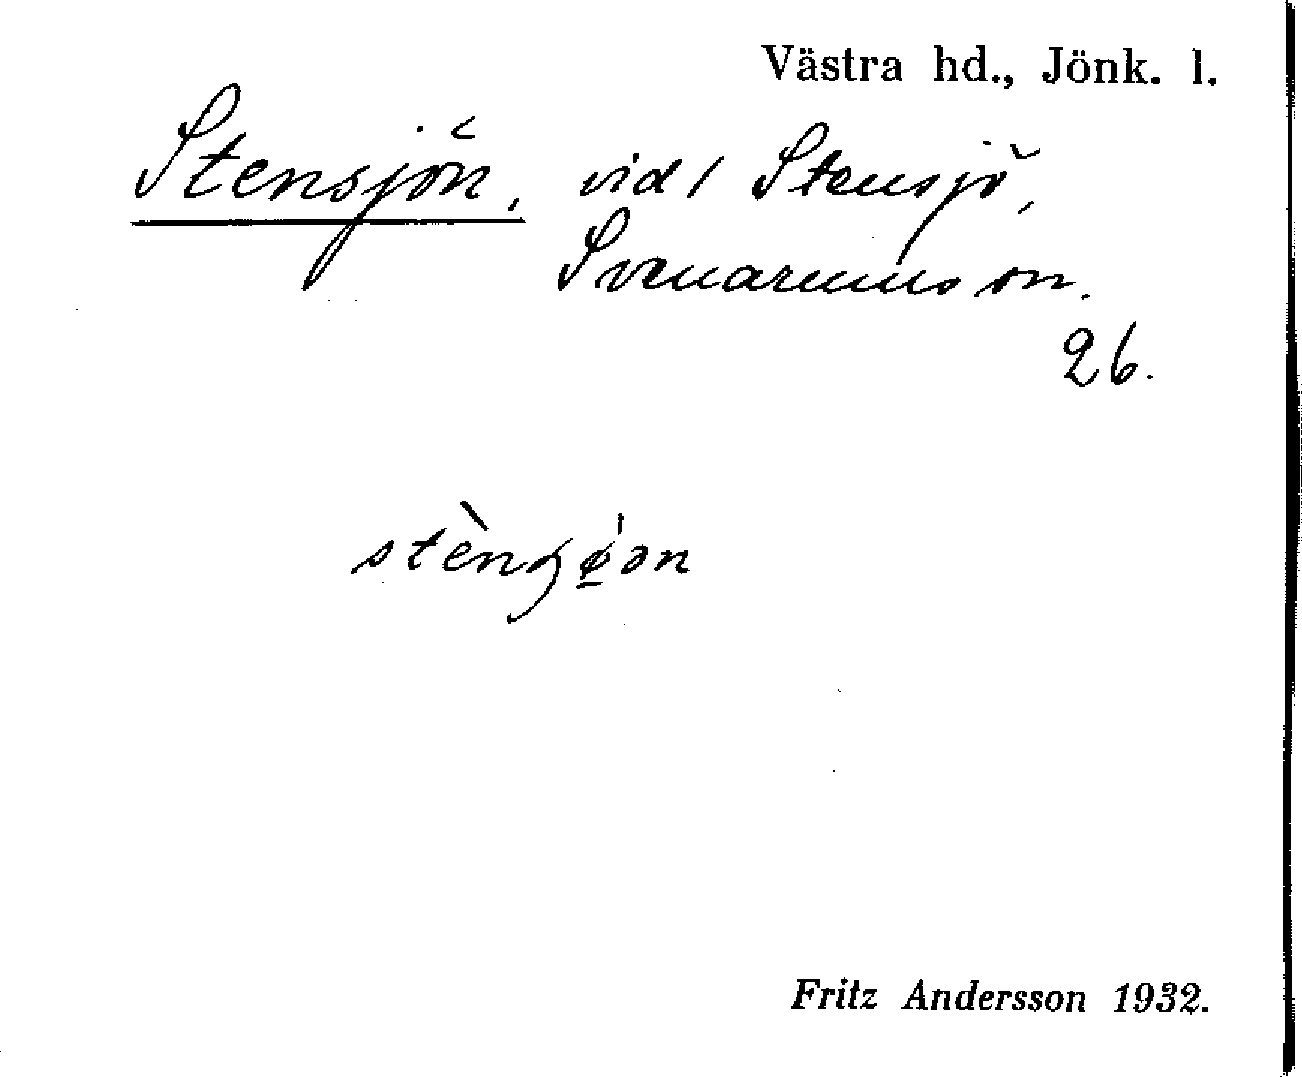 Västra hd., Jönk. l.
Stensjön, vid 1 Stensjö,
Svenarums sn.
26.
stèn
Fritz Andersson 1932.